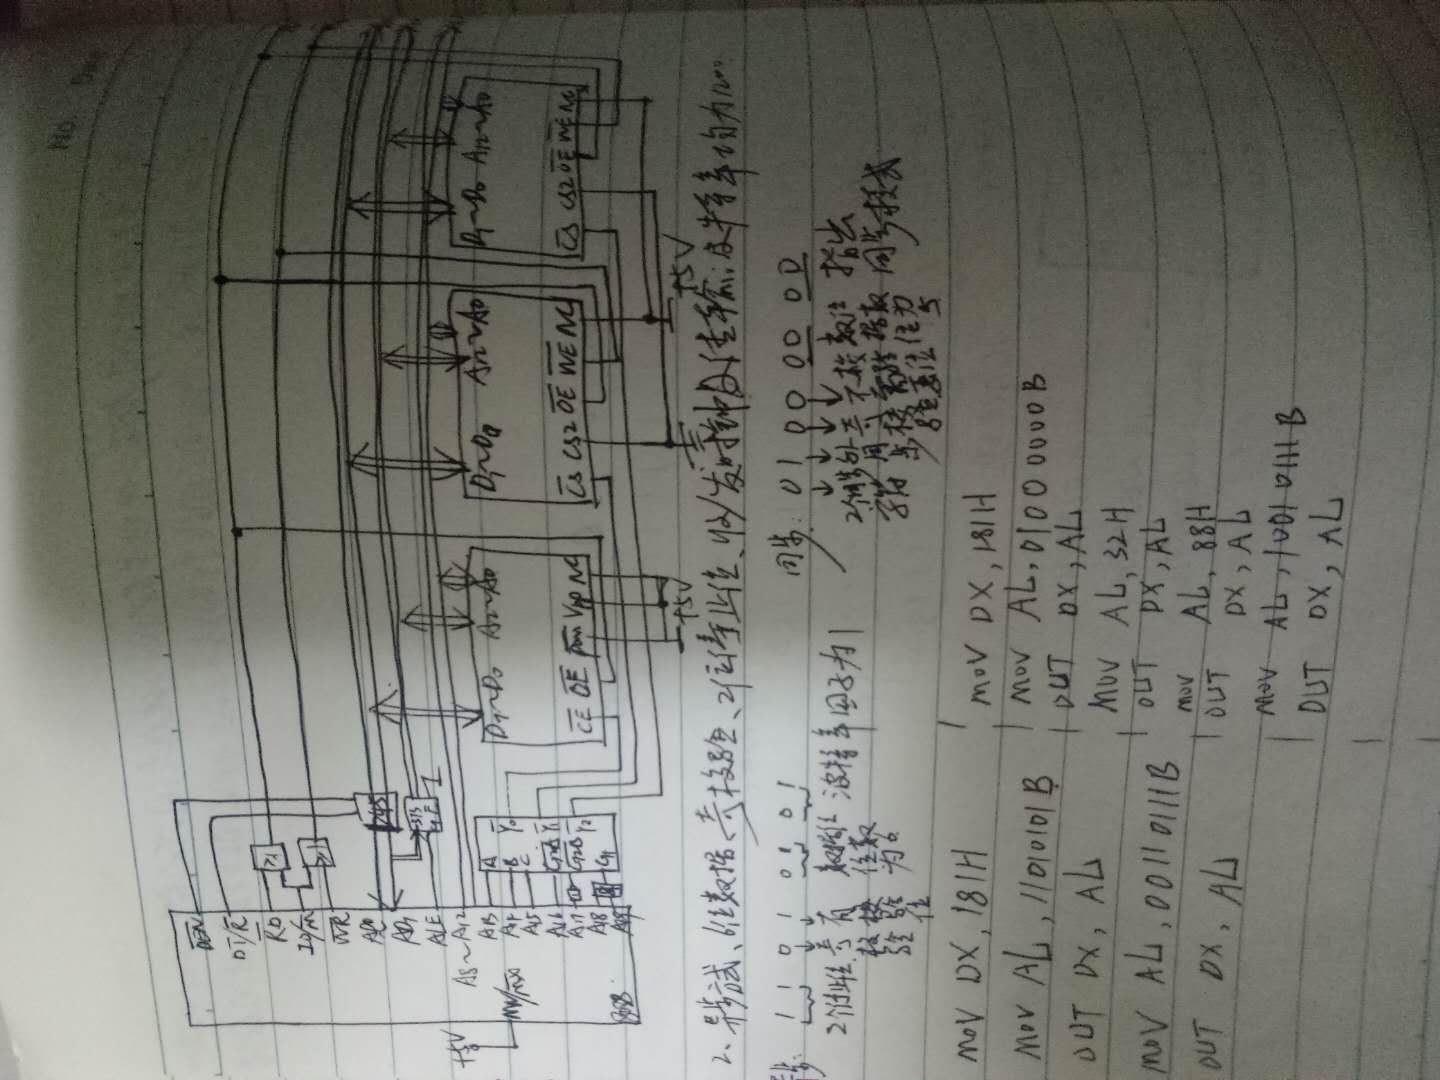 No.
DEN
DT/R
RD
IO/M
WR
≥1
≥1
AD0
AD7
ALE
245
A8~A12
+5V
MN/MX
A13
A14
A15
A16
A17
A18
A19
8088
A
B
C
G2A
G2B
G1
Y0
Y1
Y2
D7~D0 A12~A0
CE OE PGM Vpp NC
D7~D0 A12~A0
CS CS2 OE WE NC
D7~D0 A12~A0
CS CS2 OE WE NC
+5V
+5V
2、异步式、6位数据、奇校验、2位停止位、收/发时钟及传输波特率均为1200
步: 1 1 0 1 0 1 0 1
2个停止位 奇校验 有校验位 数据位位数为6 波特率因子为1
同步: 0 1 0 0 0 0 0 0
2个同步字符 外同步 奇校验 不需要校验位 数据位数为5 指出同步模式
MOV DX, 181H
MOV AL, 11010101B
OUT DX, AL
MOV AL, 00110111B
OUT DX, AL
MOV DX, 181H
MOV AL, 01000000B
OUT DX, AL
MOV AL, 32H
OUT DX, AL
MOV AL, 88H
OUT DX, AL
MOV AL, 10010111B
OUT DX, AL